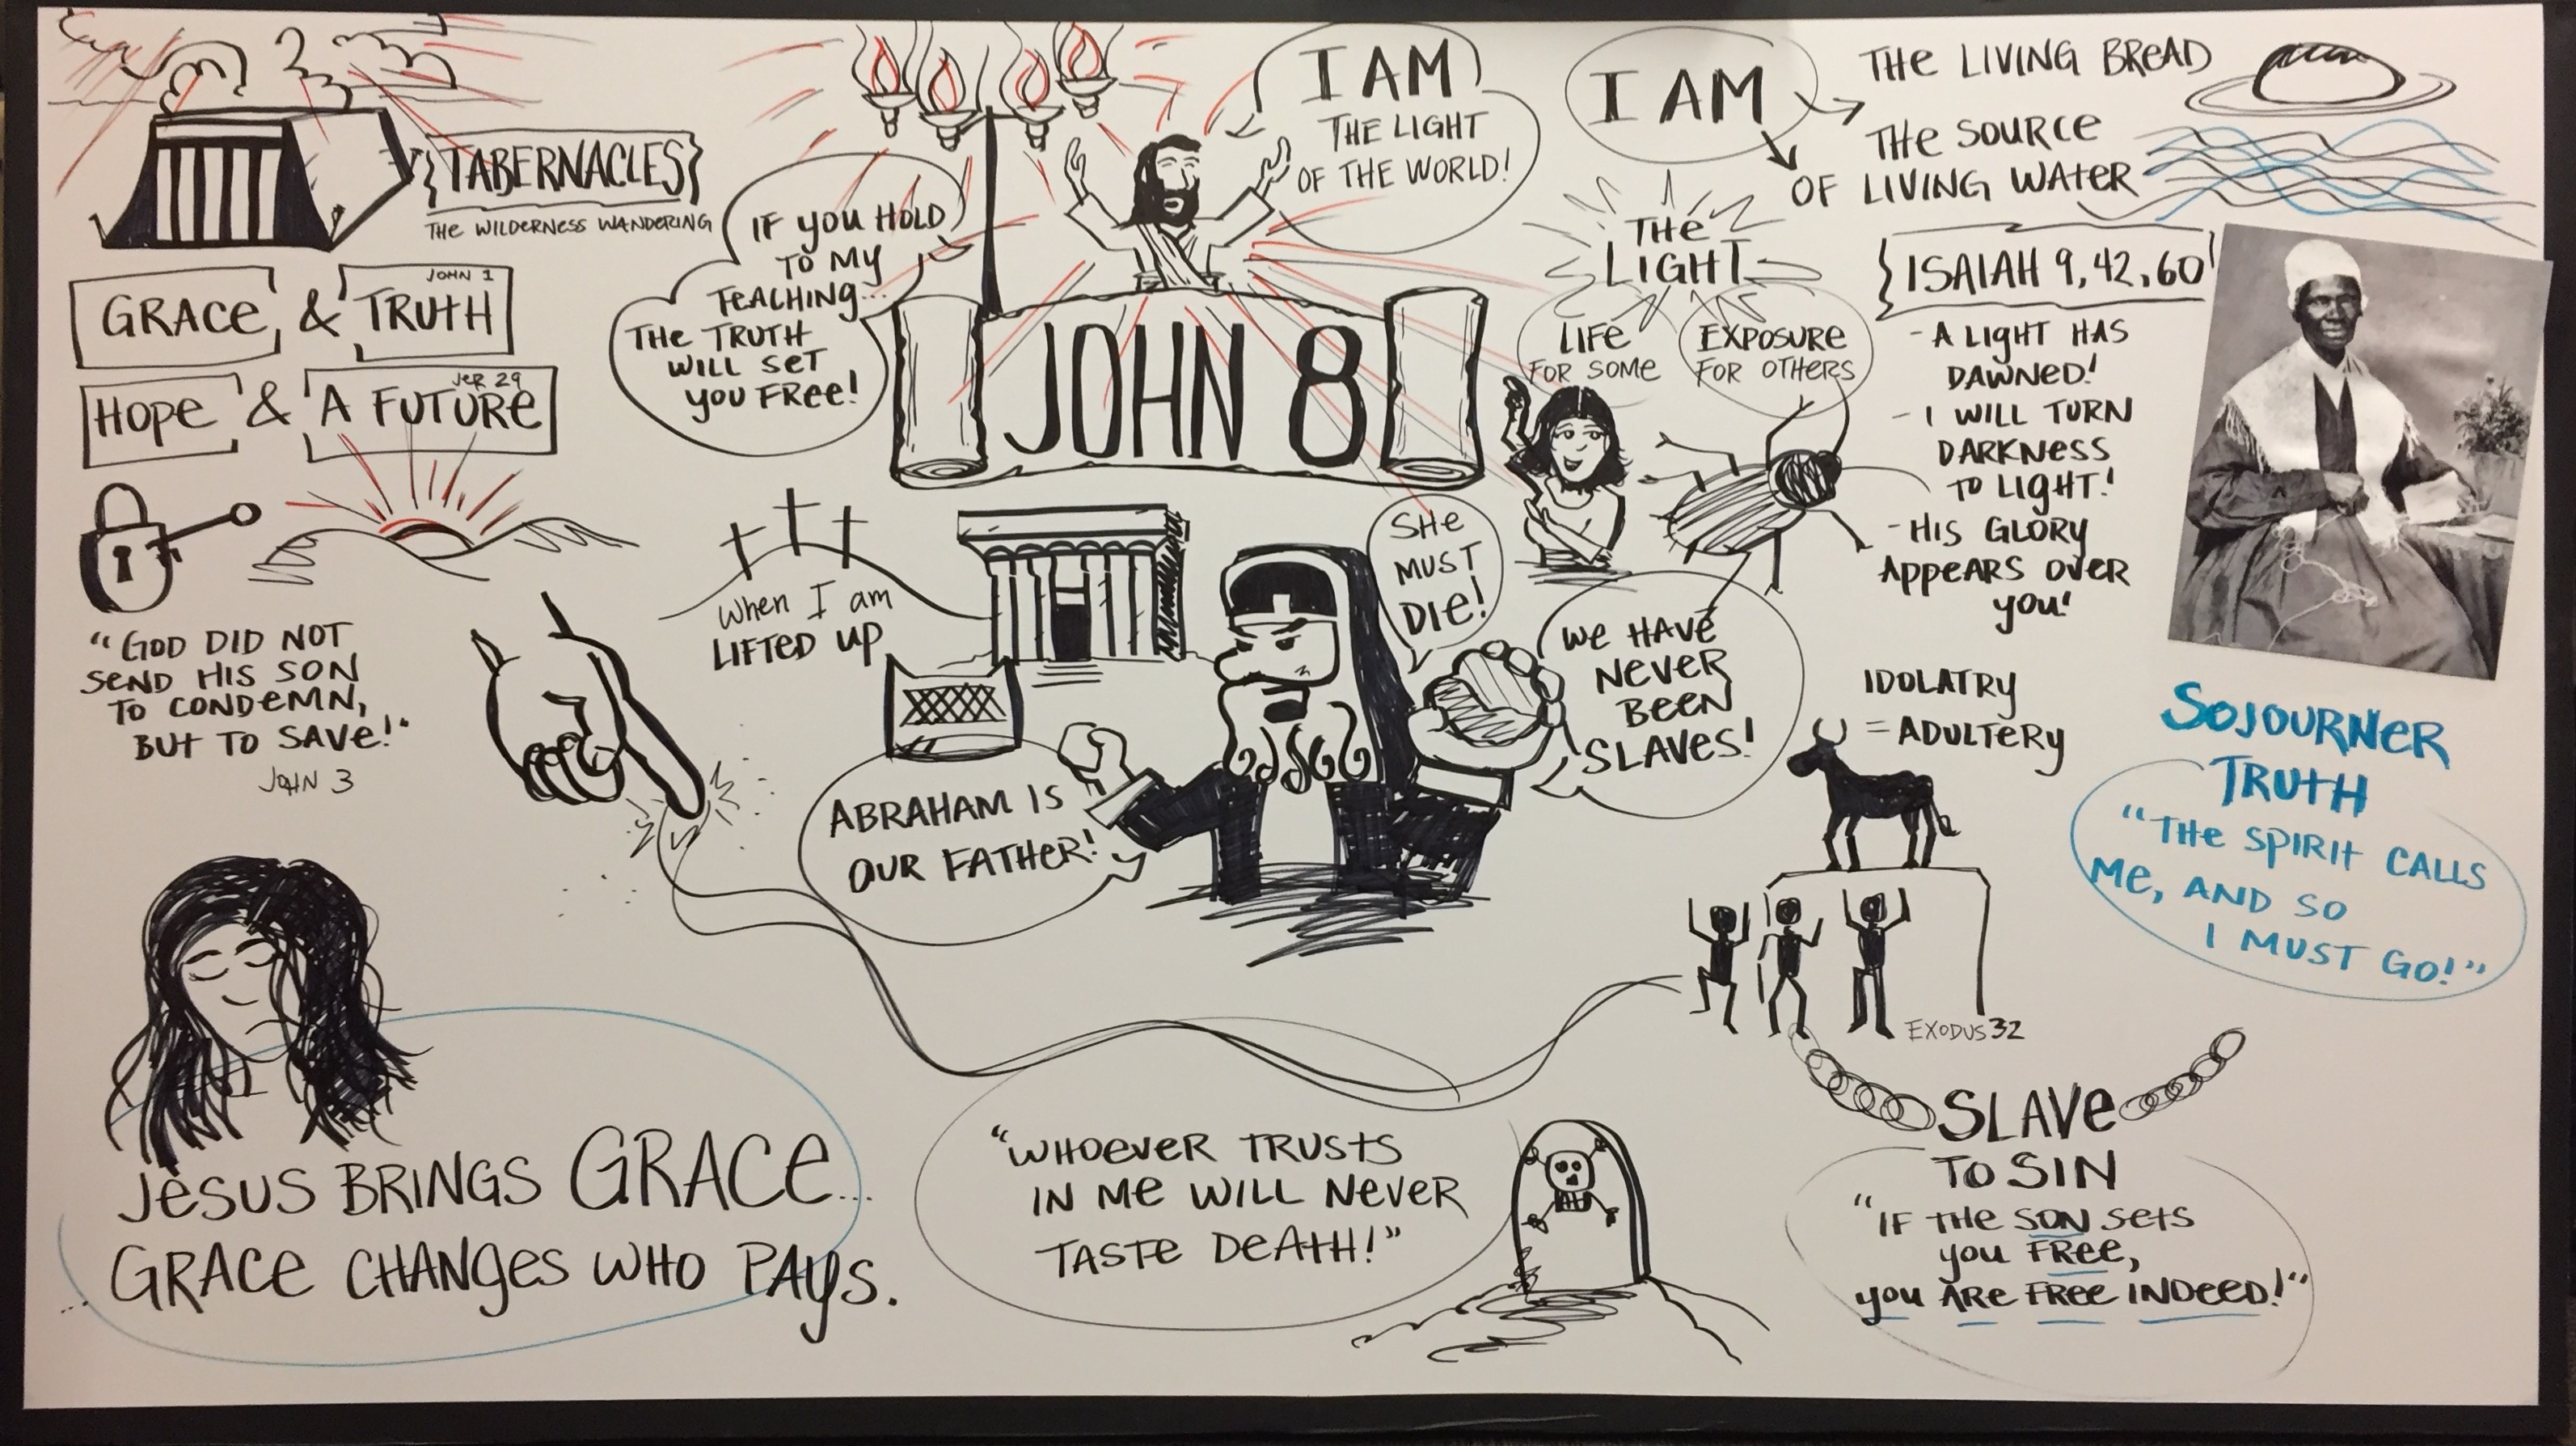 TABERNACLES
THE WILDERNESS WANDERING
JOHN 1
GRACE & TRUTH
JER 29
HOPE & A FUTURE
"GOD DID NOT
SEND HIS SON
TO CONDEMN,
BUT TO SAVE!"
JOHN 3
IF YOU HOLD
TO MY
TEACHING...
THE TRUTH
WILL SET
YOU FREE!
I AM
THE LIGHT
OF THE WORLD!
JOHN 8
I AM
THE LIVING BREAD
THE SOURCE
OF LIVING WATER
THE
LIGHT
LIFE
FOR SOME
EXPOSURE
FOR OTHERS
ISAIAH 9, 42, 60
- A LIGHT HAS
DAWNED!
- I WILL TURN
DARKNESS
TO LIGHT!
- HIS GLORY
APPEARS OVER
YOU!
When I am
LIFTED UP
SHE
MUST
DIE!
WE HAVE
NEVER
BEEN
SLAVES!
ABRAHAM IS
OUR FATHER!
IDOLATRY
= ADULTERY
EXODUS 32
SOJOURNER
TRUTH
"THE SPIRIT CALLS
ME, AND SO
I MUST GO!"
JESUS BRINGS GRACE...
... GRACE CHANGES WHO PAYS.
"WHOEVER TRUSTS
IN ME WILL NEVER
TASTE DEATH!"
SLAVE
TO SIN
"IF THE SON SETS
YOU FREE,
YOU ARE FREE INDEED!"